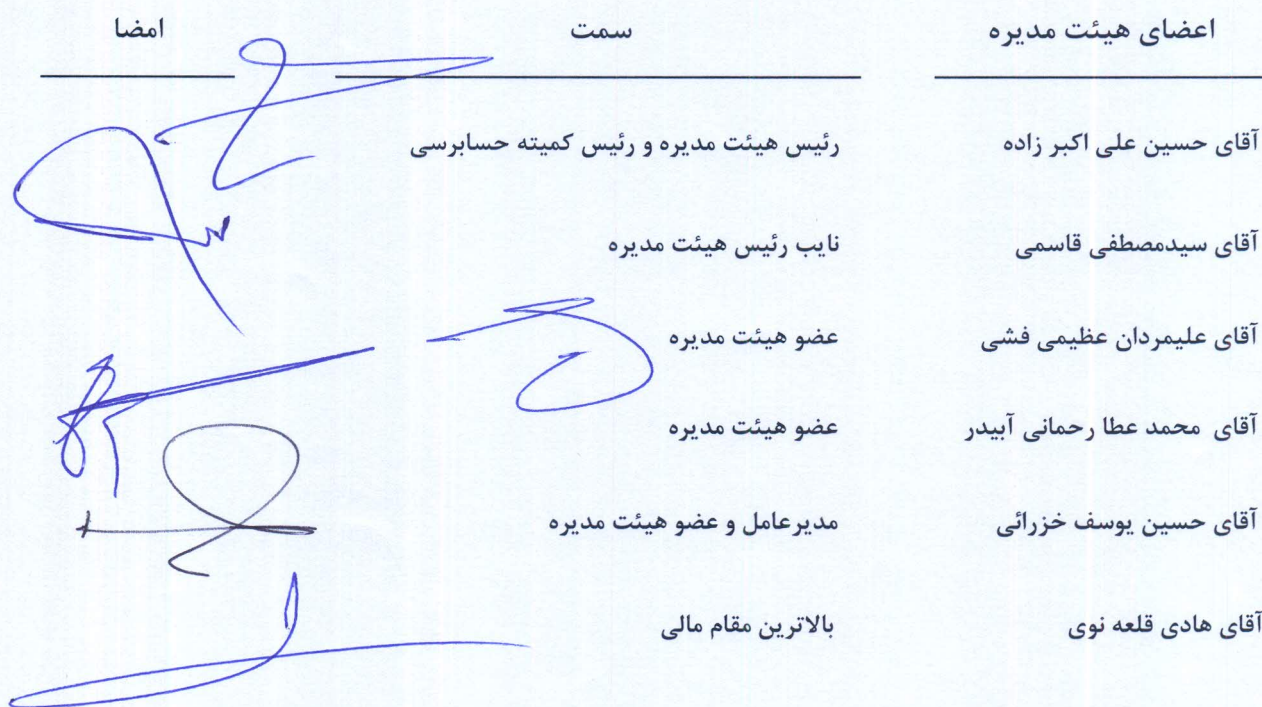 اعضای هیئت مدیره سمت امضا
آقای حسین علی اکبر زاده رئیس هیئت مدیره و رئیس کمیته حسابرسی
آقای سیدمصطفی قاسمی نایب رئیس هیئت مدیره
آقای علیمردان عظیمی فشی عضو هیئت مدیره
آقای محمد عطا رحمانی آبیدر عضو هیئت مدیره
آقای حسین یوسف خزرائی مدیرعامل و عضو هیئت مدیره
آقای هادی قلعه نوی بالاترین مقام مالی